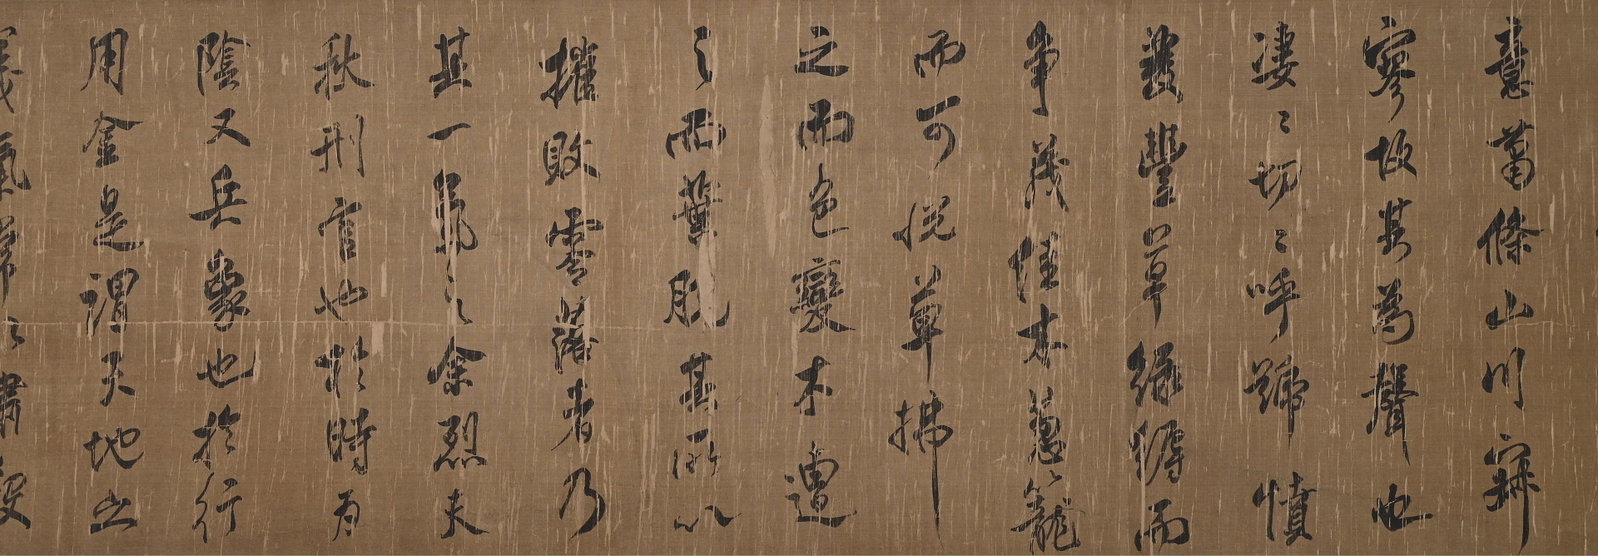 意蕭條山川寂
寥故其為聲也
淒〻切〻呼號憤
發豐草綠縟而
爭茂佳木蔥籠
而可悅草拂
之而色變木遭
之而葉脫其所以
摧敗零落者乃
其一氣之余烈夫
秋刑官也於時為
陰又兵象也於行
用金是謂天地之
義氣常以肅殺